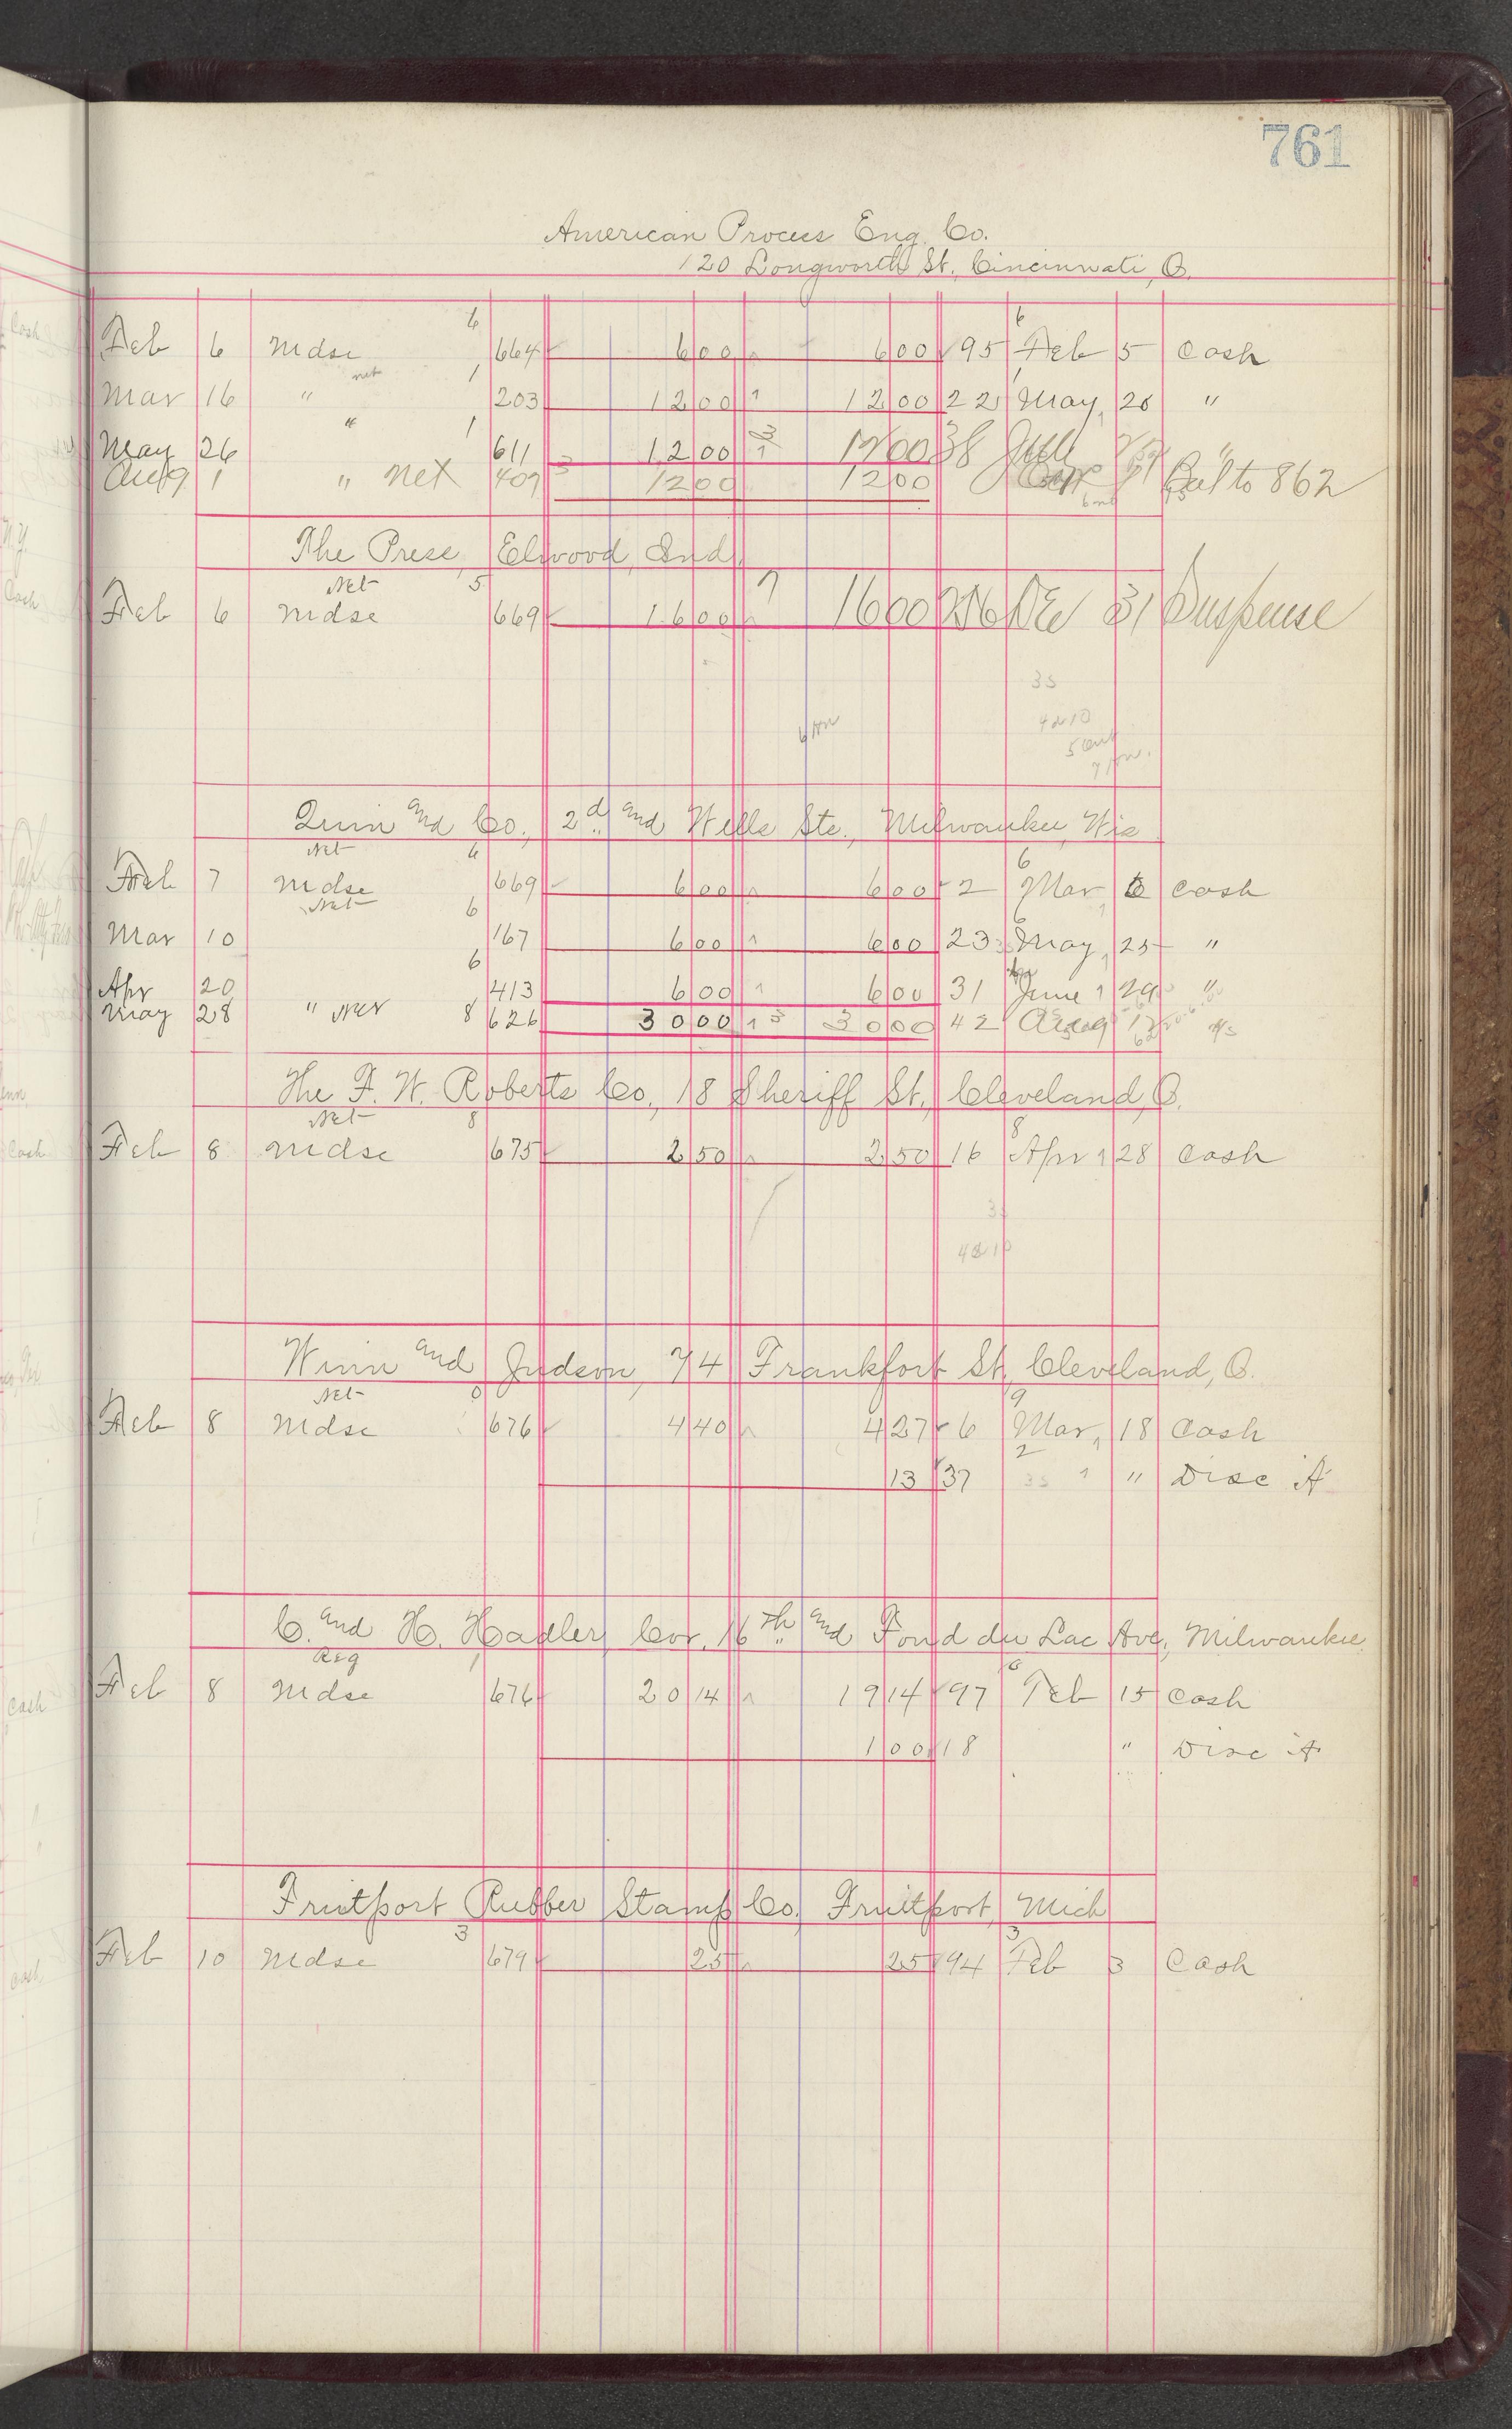 761
American Process Eng. Co.
120 Longworth St. Cincinnati, O.
6 6
Feb 6 Mdse 664 6 00 6 00 95 Feb 5 Cash
net 1
Mar 16 " 203 12 00 1 12 00 22 May 26 "
" 1
May 26 611 12 00 1 12 00 38 "
Aug 1 " net 409 12 00 12 00 Bal to 862
The Press, Elwood, Ind
Net 5
Feb 6 Mdse 669 16 00 16 00 31 Suspense
35
4 d 10
Quin and Co., 2d and Wells Sts., Milwaukee, Wis
Net 6 6
Feb 7 Mdse 669 6 00 6 00 2 Mar 6 Cash
Net 6 6
Mar 10 167 6 00 1 6 00 23 May 25 "
6
Apr 20 413 6 00 1 6 00 31 June 29 "
May 28 " net 8 626 30 00 1 30 00 42 Aug
The F. W. Roberts Co., 18 Sheriff St., Cleveland, O.
Net 8 8
Feb 8 Mdse 675 2 50 2 50 16 Apr 28 Cash
4 d 10
Winn and Judson, 74 Frankfort St, Cleveland, O.
Net 9
Feb 8 Mdse 676 4 40 4 27 6 Mar 18 Cash
2
13 37 35 " Disc A
C. and H. Hadler, Cor. 16th and Fond du Lac Ave, Milwaukee
Reg 1
Feb 8 Mdse 676 20 14 19 14 97 Feb 15 Cash
1 00 18 " Disc A
Fruitport Rubber Stamp Co, Fruitport, Mich
3 3
Feb 10 Mdse 679 25 25 94 Feb 3 Cash